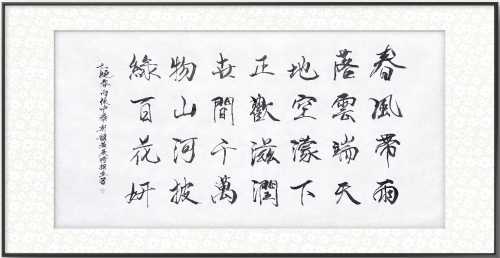 春風帶雨
落雲端天
地空濛下
正歡滋潤
世間千萬
物山河披
綠百花妍
七絕春雨